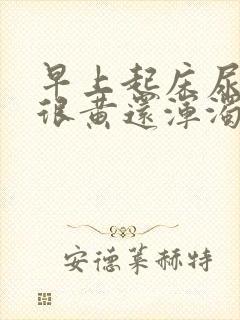 早上起床尿
很黄还浑浊
安德莱赫特